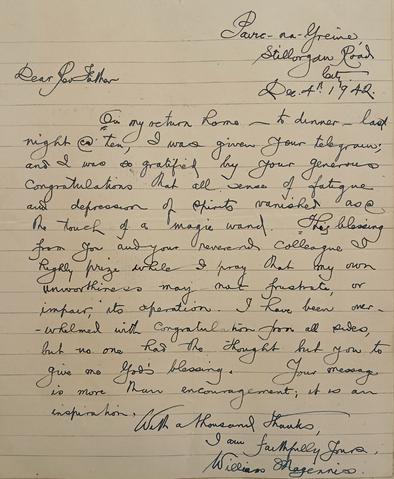 Pairc-na-Greine
Stillorgan Road
City.
Dec. 4th 1942.
Dear Rev Father
On my return home — to dinner — last
night @ ten, I was given your telegram;
and I was so gratified by your generous
congratulations that all sense of fatigue
and depression of spirits vanished as @
the touch of a magic wand. The blessing
from you and your reverend colleague I
highly prize while I pray that my own
unworthiness may not frustrate, or
impair, its operation. I have been over-
-whelmed with congratulation from all sides,
but no one had the thought but you to
give me God's blessing. Your message
is more than encouragement; it is an
inspiration.
With a thousand thanks,
I am faithfully yours,
William Magennis.